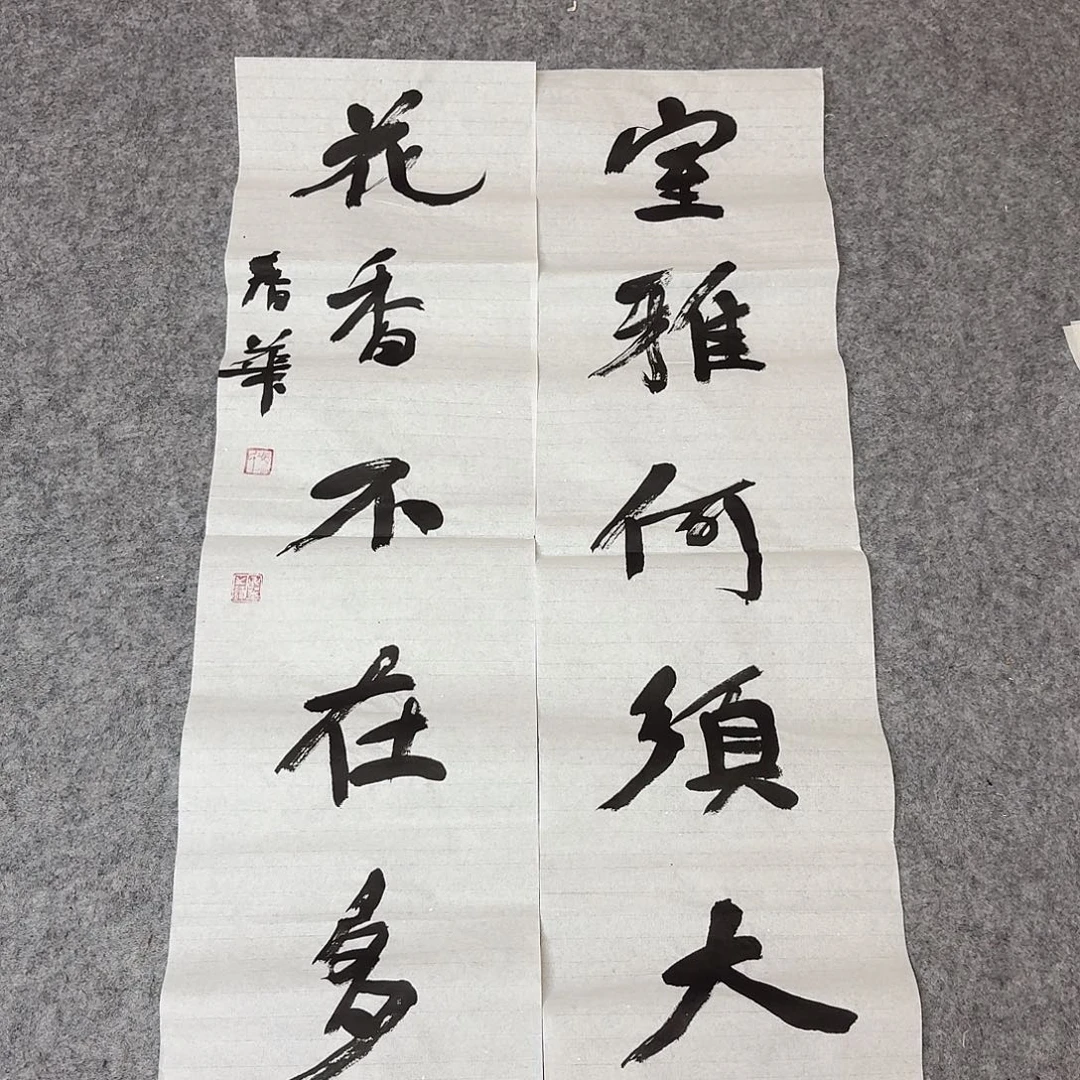 室雅何須大
花香不在多
春華